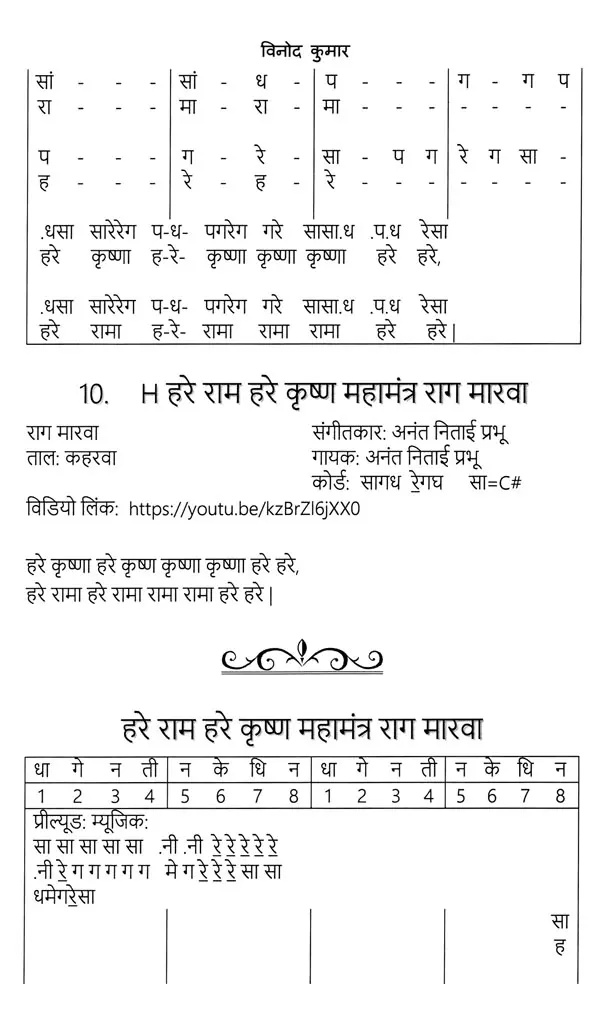 विनोद कुमार
सां - - - सां - ध - प - - - ग - ग प
रा - - - मा - रा - मा - - - - - - -
प - - - ग - रे - सा - प ग रे ग सा -
ह - - - रे - ह - रे - - - - - - -
.धसा सारेरेग प-ध- पगरेग गरे सासा.ध .प.ध रेसा
हरे कृष्णा ह-रे- कृष्णा कृष्णा कृष्णा हरे हरे,
.धसा सारेरेग प-ध- पगरेग गरे सासा.ध .प.ध रेसा
हरे रामा ह-रे- रामा रामा रामा हरे हरे|
10. H हरे राम हरे कृष्ण महामंत्र राग मारवा
राग मारवा संगीतकार: अनंत निताई प्रभू
ताल: कहरवा गायक: अनंत निताई प्रभू
कोर्ड: सागध रे॒गघ सा=C#
विडियो लिंक: https://youtu.be/kzBrZl6jXX0
हरे कृष्णा हरे कृष्ण कृष्णा कृष्णा हरे हरे,
हरे रामा हरे रामा रामा रामा हरे हरे|
हरे राम हरे कृष्ण महामंत्र राग मारवा
धा गे न ती न के धि न धा गे न ती न के धि न
1 2 3 4 5 6 7 8 1 2 3 4 5 6 7 8
प्रील्यूड: म्यूजिक:
सा सा सा सा सा .नी .नी रे॒ रे॒ रे॒ रे॒ रे॒
.नी रे॒ ग ग ग ग ग मे ग रे॒ रे॒ रे॒ सा सा
धमेगरे॒सा
सा
ह